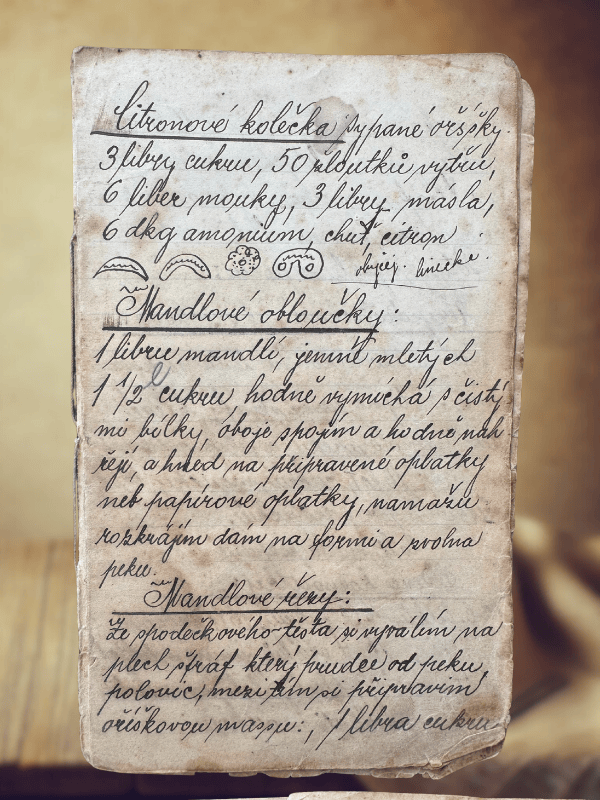 Citronové kolečka sypané oříšky.
3 libry cukru, 50 žloutků vytřu,
6 liber mouky, 3 libry másla,
6 dkg amonium, chuť, citron
linecke.
Mandlové obloučky:
1 libru mandlí, jemně mletých
1 1/2 l cukru hodně vymíchá s čistý-
mi bílky, oboje spojím a hodně nah
řeji, a hned na připravené oplatky
neb papírové oplatky, namažu
rozkrájím dám na formi a zvolna
peku.
Mandlové řezy:
Ze spodečkového těsta si vyválím na
plech štráf který prudce od peku,
polovic, mezi tím si připravím
oříškovou massu:, 1 libra cukru